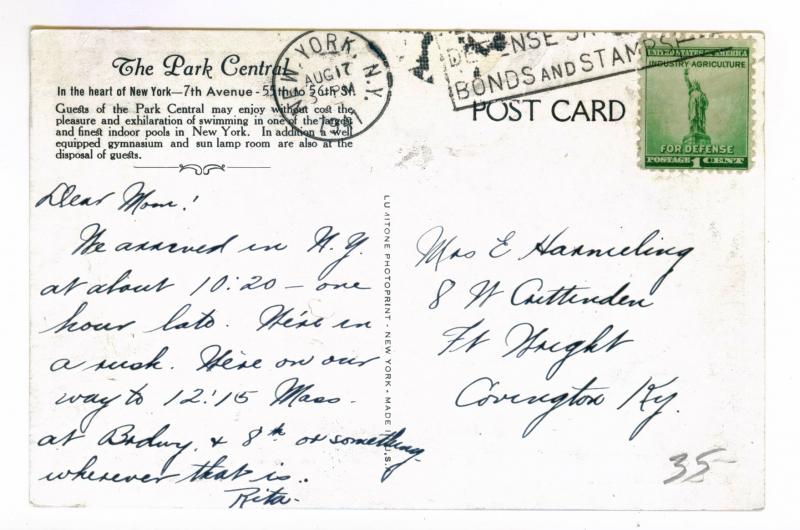 The Park Central
In the heart of New York—7th Avenue - 55th to 56th St.
Guests of the Park Central may enjoy without cost the
pleasure and exhilaration of swimming in one of the largest
and finest indoor pools in New York. In addition a well
equipped gymnasium and sun lamp room are also at the
disposal of guests.
NEW YORK, N.Y.
AUG 17
PM
1941
DEFENSE
BONDS AND STAMPS
POST CARD
UNITED STATES OF AMERICA
INDUSTRY AGRICULTURE
FOR DEFENSE
POSTAGE 1 CENT
Dear Mom!
We arrived in N.Y.
at about 10:20 — one
hour late. We're in
a rush. We're on our
way to 12:15 Mass.
at Brdwy. & 8th or something
wherever that is.
Rita.
LUMITONE PHOTOPRINT - NEW YORK - MADE IN U.S.A.
Mrs E Harmeling
8 W Crittenden
Ft Wright
Covington Ky.
35